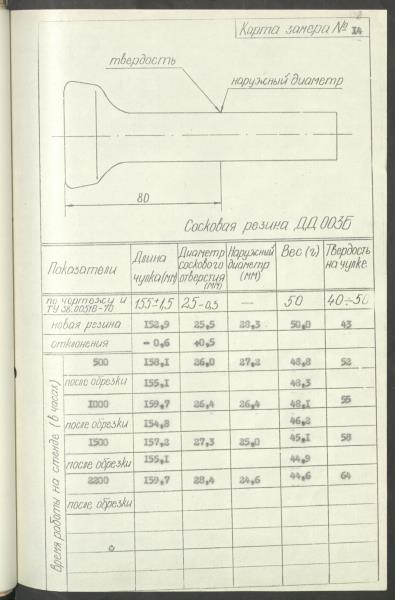 Карта замера № 14
твердость
наружный диаметр
80
Сосковая резина ДД 003Б
Показатели | Длина чулка (мм) | Диаметр соскового отверстия (мм) | Наружный диаметр (мм) | Вес (г) | Твердость на чулке
по чертежу и ТУ 38.00518-70 | 155±1,5 | 25-0,5 | — | 50 | 40÷50
новая резина | 152,9 | 25,5 | 28,3 | 50,0 | 43
отклонения | - 0,6 | +0,5
Время работы на стенде (в часах)
500 | 158,1 | 26,0 | 27,2 | 48,8 | 52
после обрезки | 155,1 | 48,3
1000 | 159,7 | 26,4 | 26,4 | 48,1 | 55
после обрезки | 154,8 | 46,2
1500 | 157,2 | 27,3 | 25,0 | 45,1 | 58
после обрезки | 155,1 | 44,9
2200 | 159,7 | 28,4 | 24,6 | 44,6 | 64
после обрезки